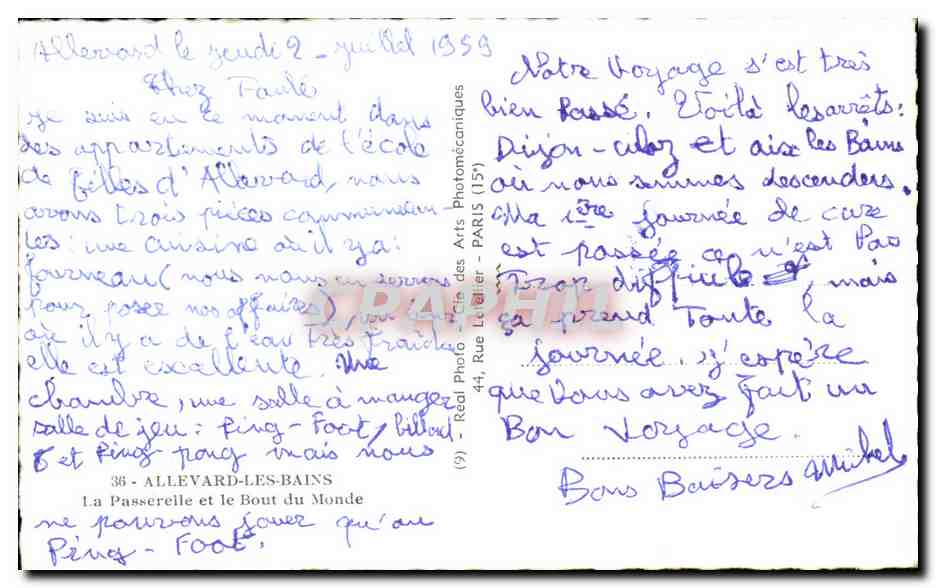 Allevard le jeudi 2 - juillet 1959
Chez Faulé
je suis en ce moment dans
des appartements de l'école
de filles d'Allevard, nous
avons trois pièces communican-
tes : une cuisine où il y a :
fourneau (nous nous en servons
pour poser nos affaires),
où il y a de l'eau très fraîche
elle est excellente. Une
chambre, une salle à manger
salle de jeu : Ping-Foot, billard
et Ping-pong mais nous
36 - ALLEVARD-LES-BAINS
La Passerelle et le Bout du Monde
ne pouvons jouer qu'au
Ping-Foot.
(9) - Réal Photo - Cie des Arts Photomécaniques
44, Rue Letellier - PARIS (15e)
Notre Voyage s'est très
bien Passé. Voilà les arrêts :
Dijon - et aix les Bains
où nous sommes descenders.
Ma 1ère journée de cure
est passée ça n'est Pas
Trop difficile, mais
ça prend Toute la
journée. j'espère
que Vous avez Fait un
Bon Voyage.
Bons Baisers Michel
DELCAMPE